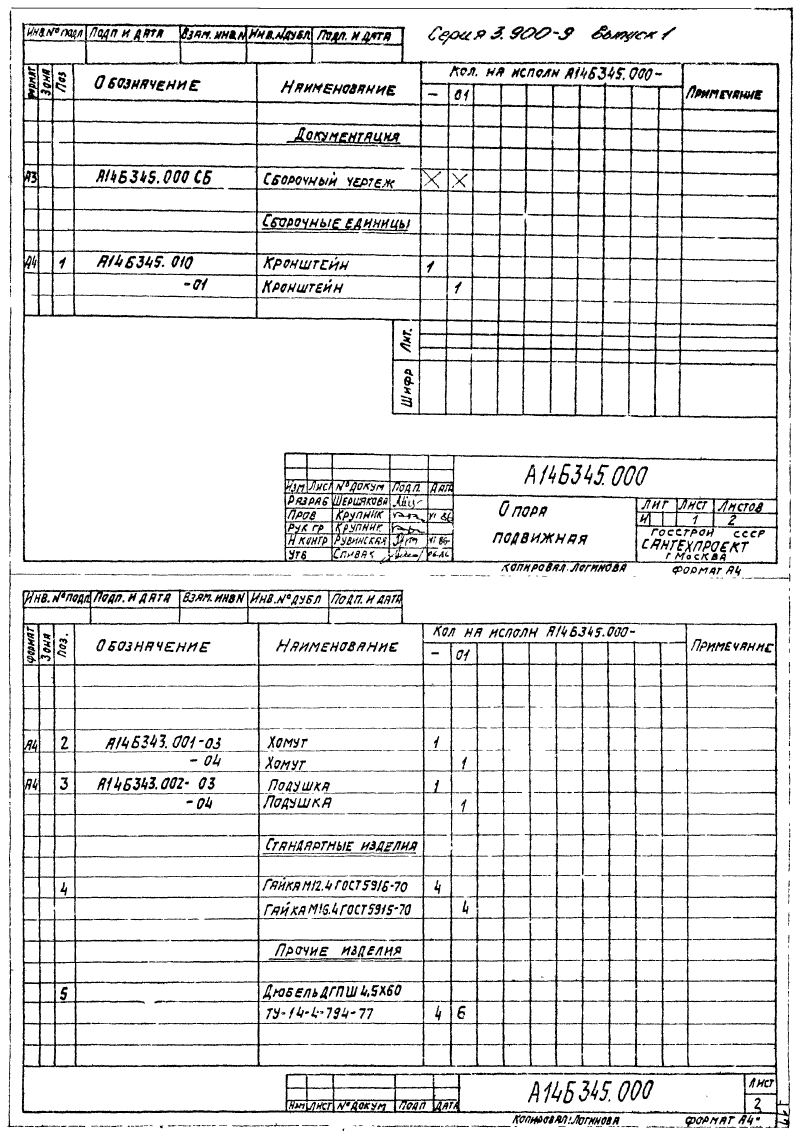 Инв.№ подл Подп и дата Взам. инв.N Инв.Nдубл. Подп. и дата
Серия 3.900-9 Выпуск 1
Формат Зона Поз Обозначение Наименование Кол. на исполн А14Б345.000- Примечание
- 01
Документация
А3 А14Б345.000 СБ Сборочный чертеж X X
Сборочные единицы
А4 1 А14Б345.010 Кронштейн 1
-01 Кронштейн 1
Лит.
Шифр
А14Б345.000
Изм Лист №докум Подп. Дата
Разраб Шершакова
Пров Крупник
Рук гр Крупник
Н контр Рувинская
Утв Спивак
Опора
подвижная
Лит Лист Листов
И 1 2
Госстрой СССР
Сантехпроект
г Москва
Копировал. Логинова Формат А4
Инв.№подл Подп. и дата Взам. инвN Инв.№дубл Подп. и дата
Формат Зона Поз. Обозначение Наименование Кол на исполн А14Б345.000- Примечание
- 01
А4 2 А14Б343.001-03 Хомут 1
-04 Хомут 1
А4 3 А14Б343.002-03 Подушка 1
-04 Подушка 1
Стандартные изделия
4 Гайка М12.4 ГОСТ 5916-70 4
Гайка М16.4 ГОСТ 5915-70 4
Прочие изделия
5 Дюбель ДГПШ 4,5х60
ТУ-14-4-794-77 4 6
А14Б345.000
Лист
2
Изм Лист №докум Подп Дата
Копировал: Логинова Формат А4